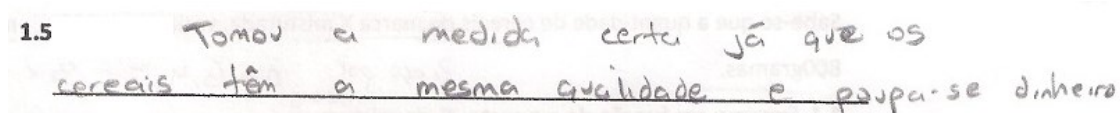 1.5 Tomou a medida certa já que os
cereais têm a mesma qualidade e poupa-se dinheiro